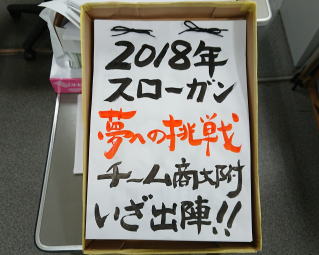 2018年
スローガン
夢への挑戦
チーム商大附
いざ出陣!!